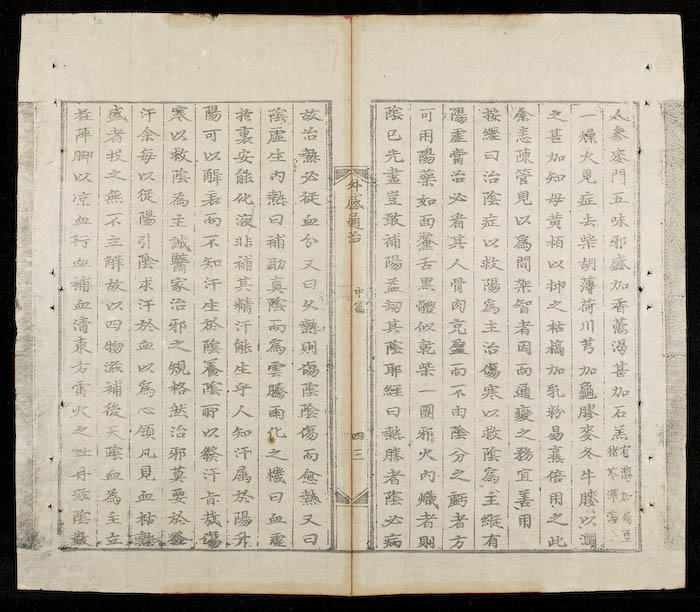 太參麥門五味邪盛加香薷渴甚加石羔
有濕加扁豆
猪苓澤瀉
一燥火見症去柴胡薄荷川芎加龜膠麥冬牛膝以潤
之甚加知母黃栢以抑之枯槁加乳粉易襄倍用之此
余悉陳管見以爲間架智者因而通變之務宜善用
按經曰治陰症以救陽爲主治傷寒以救陰爲主縱有
陽虛當治必看其人骨肉充盈而一不由陰分之虧者方
可用陽藥如面黧舌黑體似乾柴一團邪火內熾者則
陰已先盡豈敢補陽益刼其陰耶經曰熱勝者陰必病
外感通治
中篇
四三
故治熱必從血分又曰久熱則傷陰陰傷而愈熱又曰
陰虛生內熱曰補助真陰而爲雲騰雨化之機曰血虛
於裏安能化液非補其精汗能生乎人知汗属於陽升
陽可以解表而不知汗生於陰養陰所以發汗旨哉傷
寒以救陰為主誠醫家治邪之規格然治邪莫要於發
汗余每以從陽引陰求汗於血以爲心領凡見血枯熱
盛者投之無不立解故以四物滋補後天陰血為主立
柱陣脚以凉血行血補血清東方雷火之牡丹滋陰散